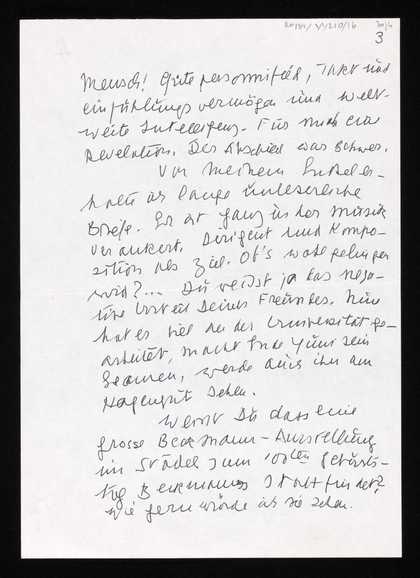 3
Mensch! Güte personifiziert, Takt und
einfühlungsvermögen und welt-
weite Intelligenz. Für mich eine
Revelation. Der Abschied war schwer.
Von meinem Enkel er-
halte ich lange unleserliche
Briefe. Er ist ganz in der Musik
verankert. Dirigent und Kompo-
sition als Ziel. Ob's wohl gelingen
wird?... Du weisst ja das nega-
tive Urteil Deines Freundes. Nun
hat er viel an der Universität ge-
arbeitet, macht Ende Juni sein
Examen, werde auch ihn am
sehen.
Weisst Du dass eine
grosse Beckmann-Ausstellung
im Städel zum 100ten geburts-
tag Beckmanns stattfindet?
Wie gern würde ich sie sehen.